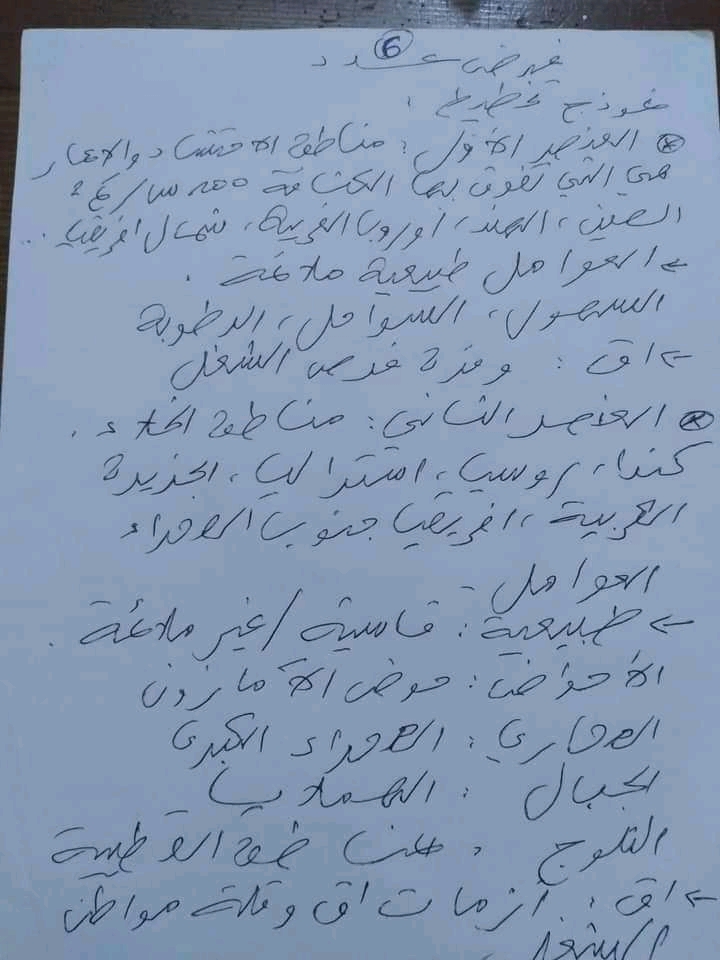 6
غير ض عدد
نموذج تخطيط :
⊛ العنصر الأول : مناطق الاكتظاظ والاعمار
هي التي تفوق بها الكثافة 200 س / كم2
الصين، الهند، أوروبا الغربية، شمال افريقيا ..
← العوامل طبيعية ملائمة .
السهول، السواحل، الرطوبة
← اق : وفرة فرص الشغل
⊛ العنصر الثاني : مناطق الخلاء .
كندا، روسيا، استراليا، الجزيرة
العربية، افريقيا جنوب الصحراء
العوامل
← طبيعية : قاسية / غير ملائمة .
الأحواض : حوض الأمازون
الصحاري : الصحراء الكبرى
الجبال : الهملايا
الثلوج : مناطق القطبية
← اق : أزمات اق وقلة مواطن
الشغل